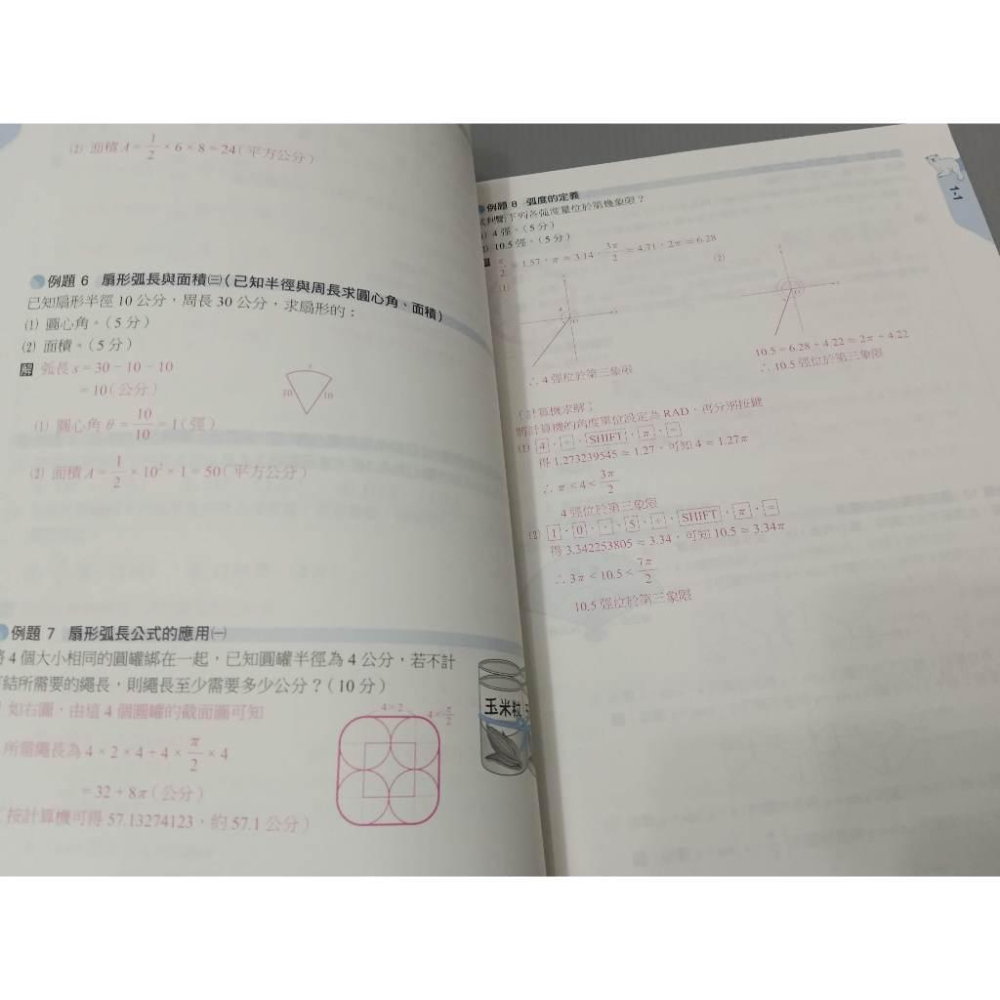 (2) 面積 A = 1/2 × 6 × 8 = 24(平方公分)
例題 6 扇形弧長與面積㈢(已知半徑與周長求圓心角、面積)
已知扇形半徑 10 公分,周長 30 公分,求扇形的:
(1) 圓心角。(5 分)
(2) 面積。(5 分)
解 弧長 s = 30 - 10 - 10
= 10(公分)
(1) 圓心角 θ = 10/10 = 1(弧)
(2) 面積 A = 1/2 × 10² × 1 = 50(平方公分)
s
10 10
例題 7 扇形弧長公式的應用㈠
將 4 個大小相同的圓罐綁在一起,已知圓罐半徑為 4 公分,若不計
結所需要的繩長,則繩長至少需要多少公分?(10 分)
如右圖,由這 4 個圓罐的截面圖可知
所需繩長為 4 × 2 × 4 + 4 × π/2 × 4
= 32 + 8π(公分)
按計算機可得 57.13274123,約 57.1 公分)
4×2
4×π/2
玉米粒
1-1
例題 8 弧度的定義
下列各弧度量位於第幾象限?
(1) 4 弳。(5 分)
(2) 10.5 弳。(5 分)
π/2 ≈ 1.57,π ≈ 3.14,3π/2 ≈ 4.71,2π ≈ 6.28
(1)
(2)
∴ 4 弳位於第三象限
10.5 = 6.28 + 4.22 ≈ 2π + 4.22
∴ 10.5 弳位於第三象限
〔計算機求解〕
將計算機的角度單位設定為 RAD,再分別按鍵
(1) 4、÷、SHIFT、π、=
得 1.273239545 ≈ 1.27,可知 4 ≈ 1.27π
∴ π < 4 < 3π/2
4 弳位於第三象限
(2) 1、0、·、5、÷、SHIFT、π、=
得 3.342253805 ≈ 3.34,可知 10.5 ≈ 3.34π
∴ 3π < 10.5 < 7π/2
10.5 弳位於第三象限